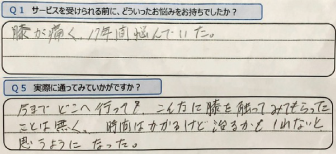 Q1 サービスを受けられる前に、どういったお悩みをお持ちでしたか？
膝が痛く、17年間悩んでいた。
Q5 実際に通ってみていかがですか？
今まで どこへ行っても、こんなに膝を触ってみてもらった
ことは無く、時間はかかるけど治るかもしれないと
思うようになった。